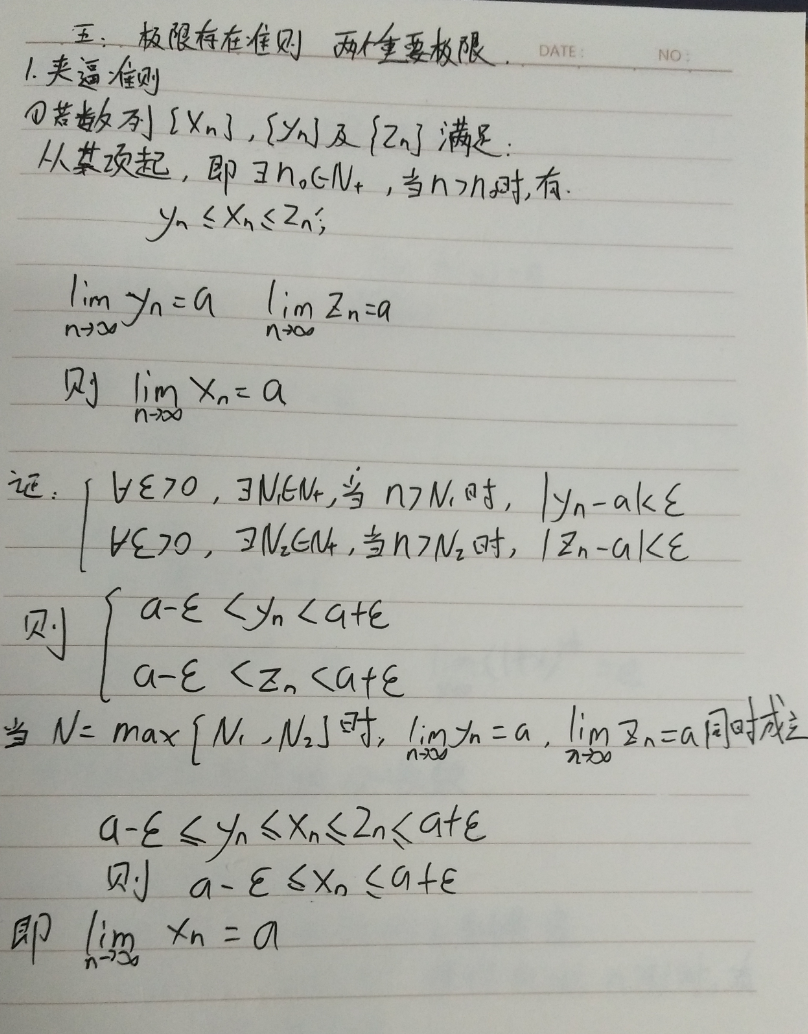 五:极限存在准则 两个重要极限.
DATE: NO:
1.夹逼准则
①若数列{Xn},{yn}及{Zn}满足:
从某项起,即∃n₀∈N₊,当n>n₀时,有.
yn≤Xn≤Zn;
lim n→∞ yn=a lim n→∞ Zn=a
则 lim n→∞ Xn=a
证: ∀ε>0,∃N₁∈N₊,当n>N₁时,|yn-a|<ε
∀ε>0,∃N₂∈N₊,当n>N₂时,|Zn-a|<ε
则 a-ε<yn<a+ε
a-ε<Zn<a+ε
当N=max{N₁,N₂}时,lim n→∞ yn=a,lim n→∞ Zn=a同时成立
a-ε≤yn≤Xn≤Zn≤a+ε
则 a-ε≤Xn≤a+ε
即 lim n→∞ Xn=a